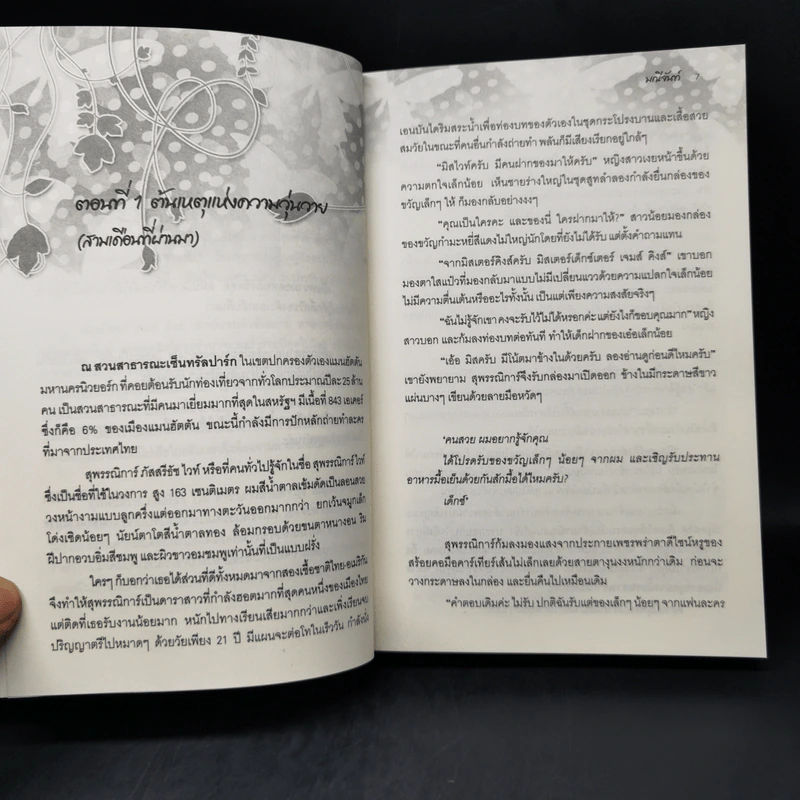 ตอนที่ 1 ต้นเหตุแห่งความวุ่นวาย
(สามเดือนที่ผ่านมา)
ณ สวนสาธารณะเซ็นทรัลปาร์ก ในเขตปกครองตัวเองแมนฮัตตัน
มหานครนิวยอร์ก ที่คอยต้อนรับนักท่องเที่ยวจากทั่วโลกประมาณปีละ 25 ล้าน
คน เป็นสวนสาธารณะที่มีคนมาเยี่ยมมากที่สุดในสหรัฐฯ มีเนื้อที่ 843 เอเคอร์
ซึ่งก็คือ 6% ของเมืองแมนฮัตตัน ขณะนี้กำลังมีการปักหลักถ่ายทำละคร
ที่มาจากประเทศไทย
สุพรรณิการ์ ภัสสรีธัช ไวท์ หรือที่คนทั่วไปรู้จักในชื่อ สุพรรณิการ์ ไวท์
ซึ่งเป็นชื่อที่ใช้ในวงการ สูง 163 เซนติเมตร ผมสีน้ำตาลเข้มดัดเป็นลอนสวย
วงหน้างามแบบลูกครึ่งแต่ออกมาทางตะวันออกมากกว่า ยกเว้นจมูกเล็ก
โด่งเชิดน้อยๆ นัยน์ตาโตสีน้ำตาลทอง ล้อมกรอบด้วยขนตาหนางอน ริม
ฝีปากอวบอิ่มสีชมพู และผิวขาวอมชมพูเท่านั้นที่เป็นแบบฝรั่ง
ใครๆ ก็บอกว่าเธอได้ส่วนที่ดีทั้งหมดมาจากสองเชื้อชาติไทย-อเมริกัน
จึงทำให้สุพรรณิการ์เป็นดาราสาวที่กำลังฮอตมากที่สุดคนหนึ่งของเมืองไทย
แต่ติดที่เธอรับงานน้อยมาก หนักไปทางเรียนเสียมากกว่าและเพิ่งเรียนจบ
ปริญญาตรีไปหมาดๆ ด้วยวัยเพียง 21 ปี มีแผนจะต่อโทในเร็ววัน กำลังนั่ง
มณีจันท์ 7
เอนบันไดริมสระน้ำเพื่อท่องบทของตัวเองในชุดกระโปรงบานและเสื้อสวย
สมวัยในขณะที่คนอื่นกำลังถ่ายทำ พลันก็มีเสียงเรียกอยู่ใกล้ๆ
“มิสไวท์ครับ มีคนฝากของมาให้ครับ” หญิงสาวเงยหน้าขึ้นด้วย
ความตกใจเล็กน้อย เห็นชายร่างใหญ่ในชุดสูทลำลองกำลังยื่นกล่องของ
ขวัญเล็กๆ ให้ ก็มองกลับอย่างงงๆ
“คุณเป็นใครคะ และของนี่ ใครฝากมาให้?” สาวน้อยมองกล่อง
ของขวัญกำมะหยี่สีแดงไม่ใหญ่นักโดยที่ยังไม่ได้รับ แต่ตั้งคำถามแทน
“จากมิสเตอร์คิงส์ครับ มิสเตอร์เด็กซ์เตอร์ เจมส์ คิงส์” เขาบอก
มองตาใสแป๋วที่มองกลับมาแบบไม่มีเปลี่ยนแววด้วยความแปลกใจเล็กน้อย
ไม่มีความตื่นเต้นหรืออะไรทั้งนั้น เป็นแต่เพียงความสงสัยจริงๆ
“ฉันไม่รู้จักเขา คงจะรับไว้ไม่ได้หรอกค่ะ แต่ยังไงก็ขอบคุณมาก” หญิง
สาวบอก และก้มลงท่องบทต่อทันที ทำให้เด็กฝากของเอ๋อเล็กน้อย
“เอ้อ มิสครับ มีโน้ตมาข้างในด้วยครับ ลองอ่านดูก่อนดีไหมครับ”
เขายังพยายาม สุพรรณิการ์จึงรับกล่องมาเปิดออก ข้างในมีกระดาษสีขาว
แผ่นบางๆ เขียนด้วยลายมือหวัดๆ
‘คนสวย ผมอยากรู้จักคุณ
ได้โปรดรับของขวัญเล็กๆ น้อยๆ จากผม และเชิญรับประทาน
อาหารมื้อเย็นด้วยกันสักมื้อได้ไหมครับ?
เด็กซ์’
สุพรรณิการ์ก้มลงมองแสงจากประกายเพชรพร่าตาดีไซน์หรูของ
สร้อยคอมือคาร์เทียร์เส้นไม่เล็กเลยด้วยสายตางุนงงหนักกว่าเดิม ก่อนจะ
วางกระดาษลงในกล่อง และยื่นคืนไปเหมือนเดิม
“คำตอบเดิมค่ะ ไม่รับ ปกติฉันรับแต่ของเล็กๆ น้อยๆ จากแฟนละคร